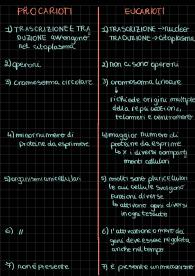 PROCARIOTI
EUCARIOTI
1) TRASCRIZIONE E TRA
DUZIONE avvengono
nel citoplasma
1) TRASCRIZIONE → nucleo
TRADUZIONE → citoplasma
2) operoni
2) non ci sono operoni
3) cromosoma circolare
3) cromosoma lineare
↳
richiede origini multiple
della replicazione,
telomeri e centromero
4) minor numero di
proteine da esprimere
4) maggior numero di
proteine da esprimere
↳ x i diversi comparti
menti cellulari
5) organismi unicellulari
5) molti sono pluricellulari
le cui cellule svolgono
funzioni diverse
↳ attivano geni diversi
in ogni tessuto
6) //
6) l'attivazione o meno dei
geni deve essere regolata
anche nel tempo
7) non è presente
7) È presente un meccanismo